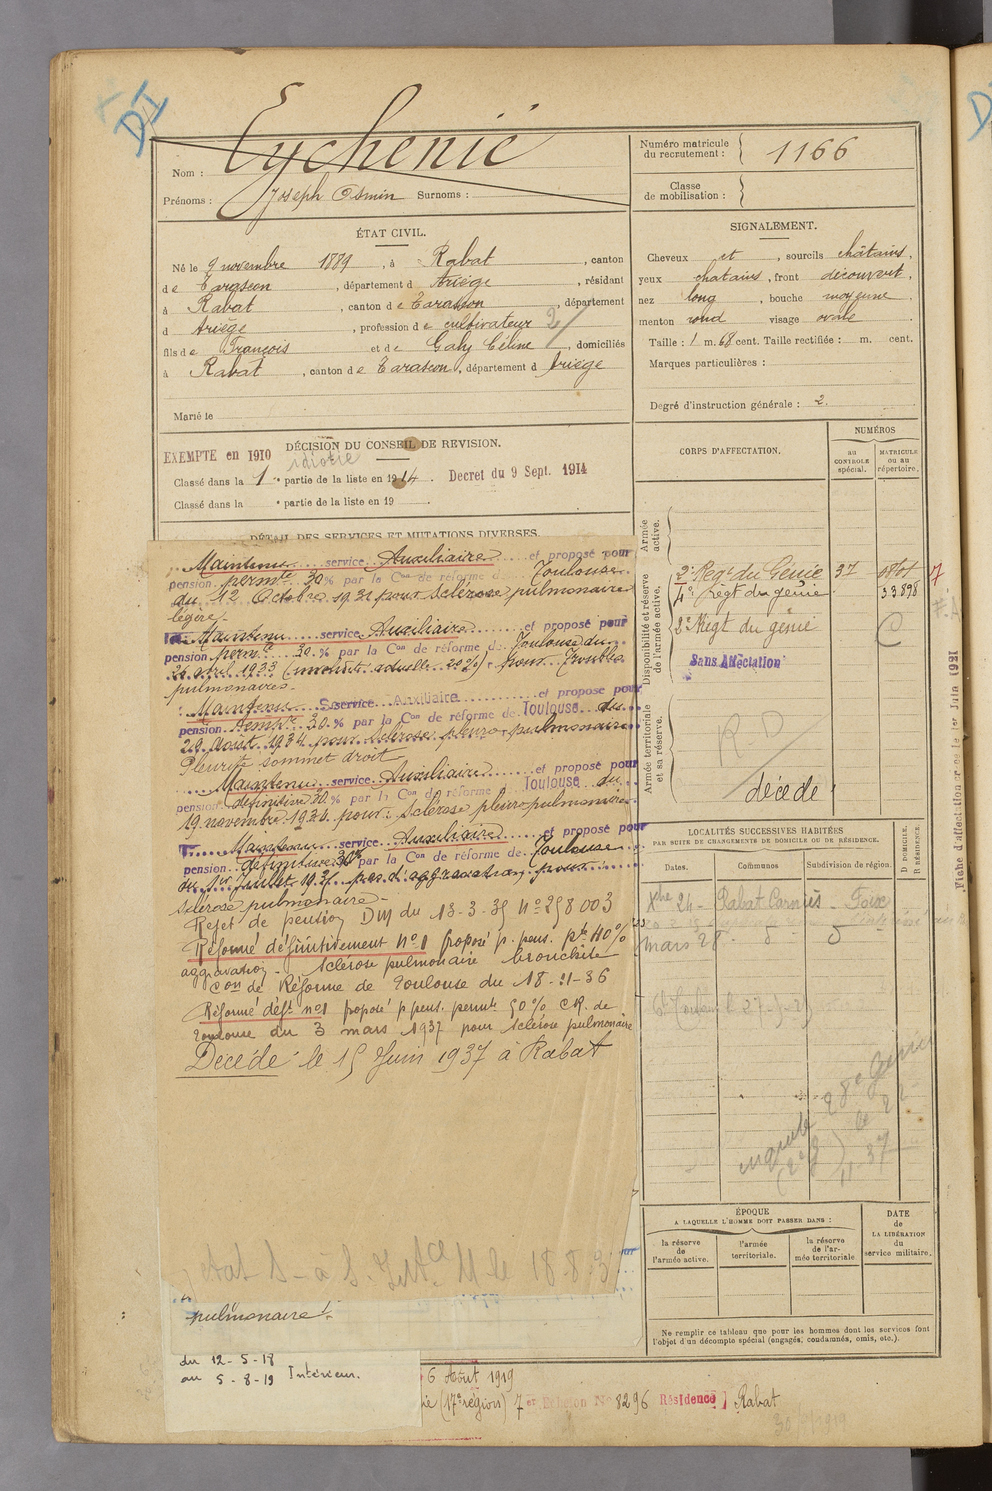 DI
Nom : Eychenié
Prénoms : Joseph Osmin Surnoms :
Numéro matricule du recrutement : 1166
Classe de mobilisation :
ÉTAT CIVIL.
Né le 9 novembre 1889, à Rabat, canton
de Tarascon, département d Ariège, résidant
à Rabat, canton de Tarascon, département
d Ariège, profession de cultivateur
fils de François et de Galy Céline, domiciliés
à Rabat, canton de Tarascon, département d Ariège
Marié le
SIGNALEMENT.
Cheveux et, sourcils châtains,
yeux chatains, front découvert,
nez long, bouche moyenne,
menton rond visage ovale
Taille : 1 m. 68 cent. Taille rectifiée : m. cent.
Marques particulières :
Degré d'instruction générale : 2.
DÉCISION DU CONSEIL DE REVISION.
EXEMPTE en 1910 idiotie
Classé dans la 1re partie de la liste en 1914. Decret du 9 Sept. 1914
Classé dans la partie de la liste en 19
DÉTAIL DES SERVICES ET MUTATIONS DIVERSES.
Maintenu service Auxiliaire et proposé pour
pension permte 30 % par la Con de réforme de Toulouse
du 12 Octobre 1931 pour sclérose pulmonaire
légère.
Maintenu service Auxiliaire et proposé pour
pension permte 30 % par la Con de réforme de Toulouse du
26 avril 1933 pour Troubles
pulmonaires.
Maintenu service Auxiliaire et proposé pour
pension temp're 30 % par la Con de réforme de Toulouse du
29 Août 1934 pour sclérose pleuro-pulmonaire
Pleurite sommet droit
Maintenu service Auxiliaire et proposé pour
pension définitive 30 % par la Con de réforme de Toulouse du
19 novembre 1934 pour : sclérose pleuro pulmonaire
Maintenu service Auxiliaire et proposé pour
pension définitive 30% par la Con de réforme de Toulouse
du 1er Juillet pas d'aggravation pour
sclérose pulmonaire
Rejet de pension DM du 13-3-35 N° 258 003
Réformé définitivement N°1 proposé p. pens. pte 40%
aggravation. sclérose pulmonaire bronchite
Con de Réforme de Toulouse du 18-11-36
Réformé déft n°1 proposé p pens. permte 50% CR. de
Toulouse du 3 mars 1937 pour sclérose pulmonaire
Décédé le 15 Juin 1937 à Rabat
pulmonaire
du 12-5-18
au 5-8-19 Intérieur.
6 Août 1919
(17e région) 7er Echelon N° 8296 Résidence Rabat
CORPS D'AFFECTATION.
NUMÉROS
au CONTROLE spécial.
MATRICULE ou au répertoire.
Armée active.
Disponibilité et réserve de l'armée active.
2e Regt du Génie 37
4e Regt du génie 33898
2e Regt du génie
Sans Affectation
Armée territoriale et sa réserve.
RD
décédé
LOCALITÉS SUCCESSIVES HABITÉES
PAR SUITE DE CHANGEMENTS DE DOMICILE OU DE RÉSIDENCE.
Dates. Communes Subdivision de région. D DOMICILE. R RÉSIDENCE.
Xbre 24 - Rabat Carniès - Foix
mars 28
ÉPOQUE
A LAQUELLE L'HOMME DOIT PASSER DANS :
la réserve de l'armée active.
l'armée territoriale.
la réserve de l'armée territoriale.
DATE de LA LIBÉRATION du service militaire.
Ne remplir ce tableau que pour les hommes dont les services font
l'objet d'un décompte spécial (engagés, condamnés, omis, etc.).